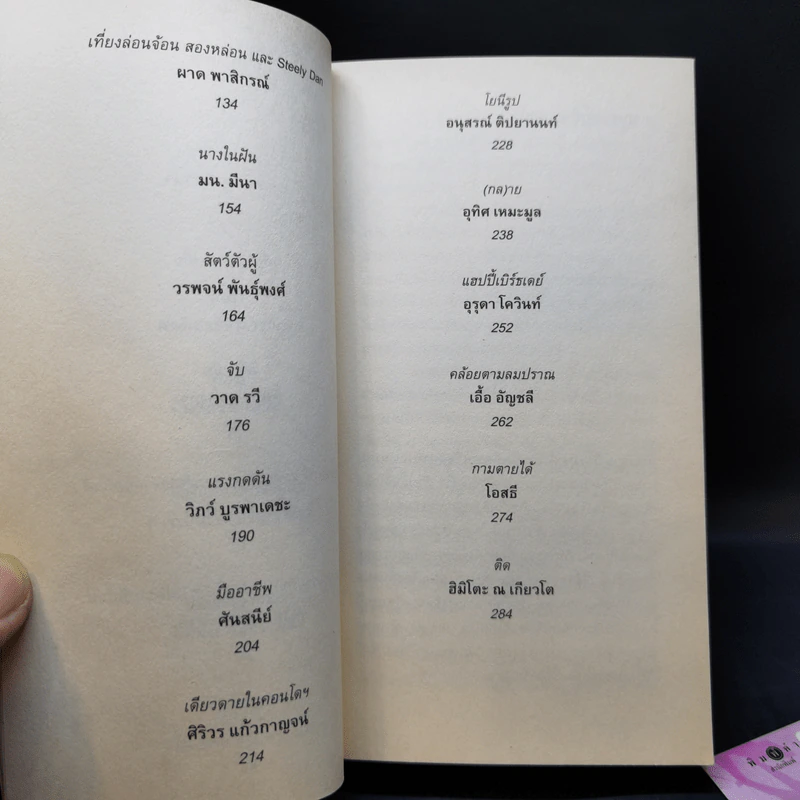 เที่ยงล่อนจ้อน สองหล่อน และ Steely Dan
ผาด พาสิกรณ์
134
นางในฝัน
มน. มีนา
154
สัตว์ตัวผู้
วรพจน์ พันธุ์พงศ์
164
จับ
วาด รวี
176
แรงกดดัน
วิภว์ บูรพาเดชะ
190
มืออาชีพ
ศันสนีย์
204
เดียวดายในคอนโดฯ
ศิริวร แก้วกาญจน์
214
โยนีรูป
อนุสรณ์ ติปยานนท์
228
(กล)าย
อุทิศ เหมะมูล
238
แฮปปี้เบิร์ธเดย์
อุรุดา โควินท์
252
คล้อยตามลมปราณ
เอื้อ อัญชลี
262
กามตายได้
โอสธี
274
ติด
ฮิมิโตะ ณ เกียวโต
284